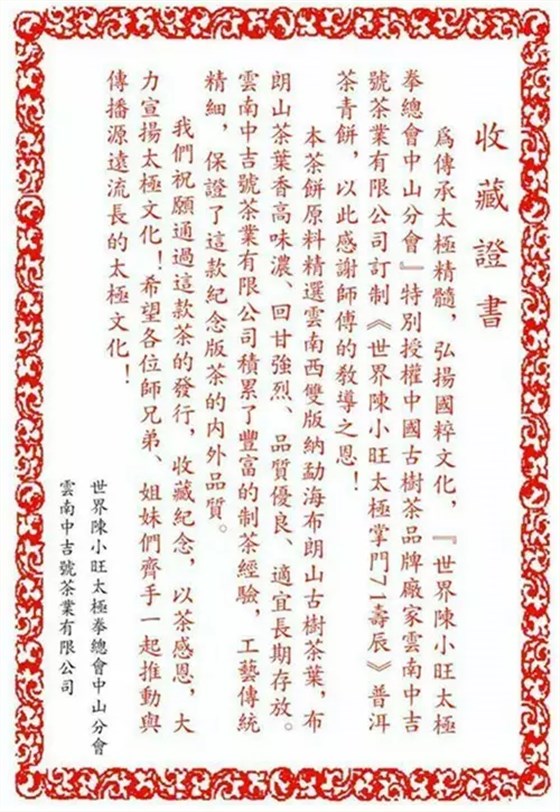 收藏證書
為傳承太極精髓，弘揚國粹文化，『世界陳小旺太極
拳總會中山分會』特別授權中國古樹茶品牌廠家雲南中吉
號茶業有限公司訂制《世界陳小旺太極掌門71壽辰》普洱
茶青餅，以此感謝師傅的教導之恩！
本茶餅原料精選雲南西雙版納勐海布朗山古樹茶葉，布
朗山茶葉香高味濃、回甘強烈、品質優良、適宜長期存放。
雲南中吉號茶業有限公司積累了豐富的制茶經驗，工藝傳統
精細，保證了這款紀念版茶的内外品質。
我們祝願通過這款茶的發行，收藏紀念，以茶感恩，大
力宣揚太極文化！希望各位師兄弟、姐妹們齊手一起推動與
傳播源遠流長的太極文化！
世界陳小旺太極拳總會中山分會
雲南中吉號茶業有限公司